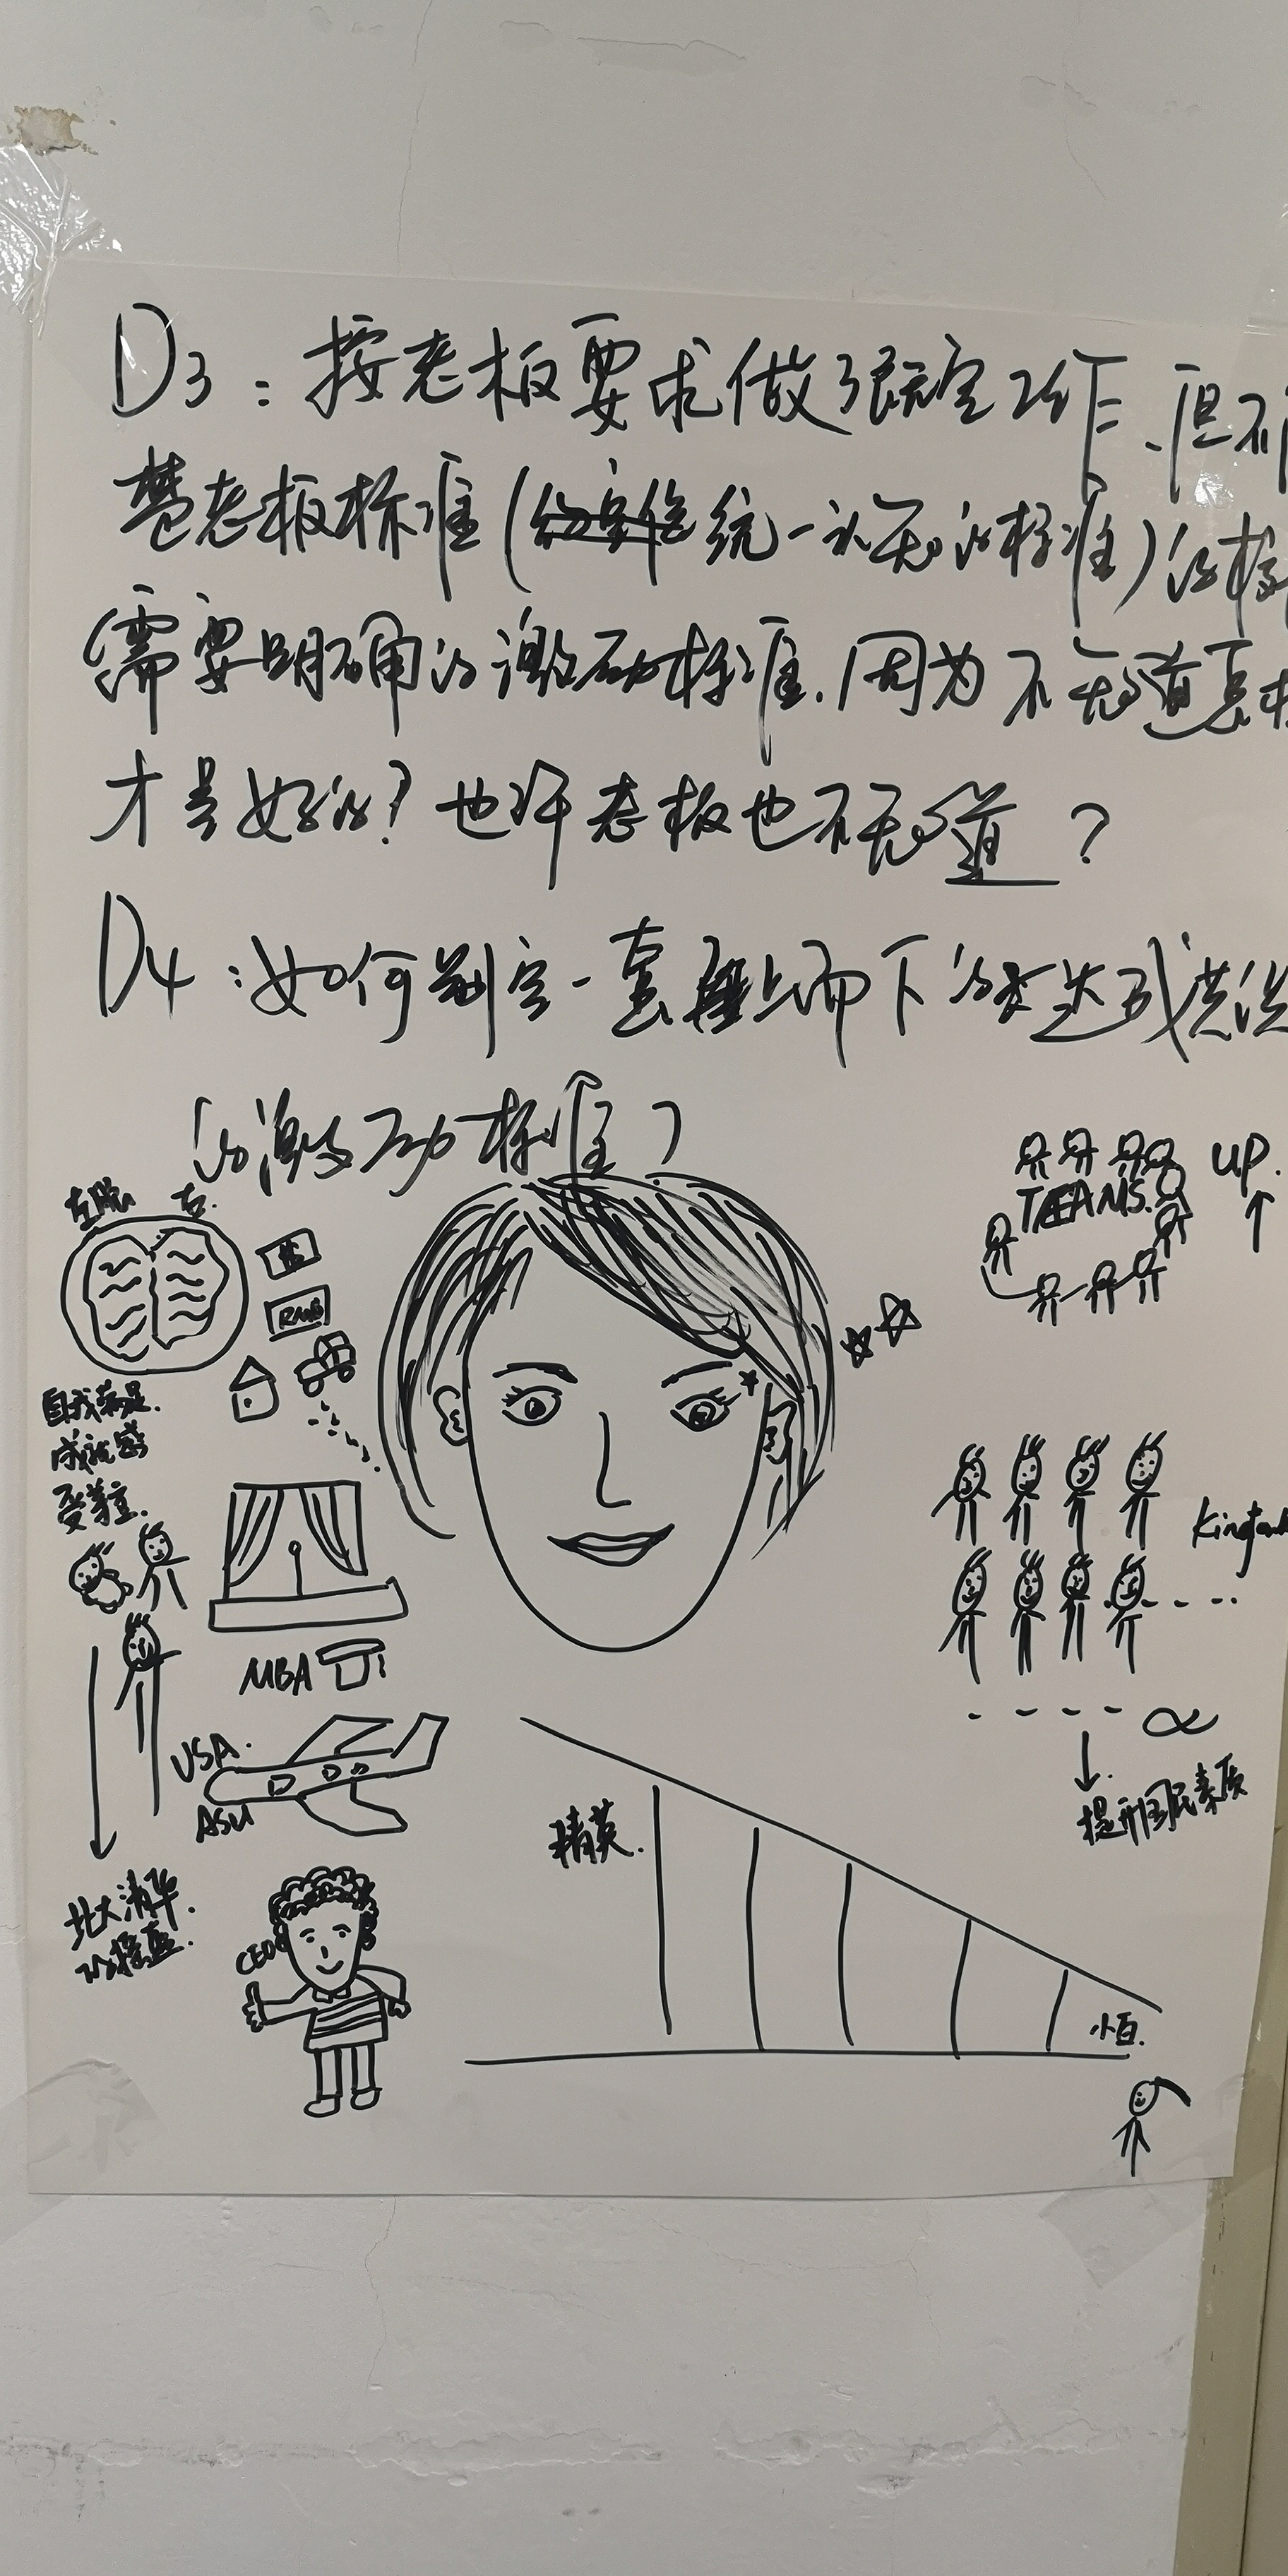 D3：按老板要求做了既定工作、但不
楚老板标准（统一认知的标准）的
需要明确的激励标准.因为不知道怎样
才是好的？也许老板也不知道？
D4：如何制定一套自上而下的达成共识
的激励标准？
左脑 右.
TEAMS.
UP.
RMB
自我满足.
成就感
受尊重.
MBA
USA.
ASU
精英.
提升国民素质
北大清华.
CEO
小白.